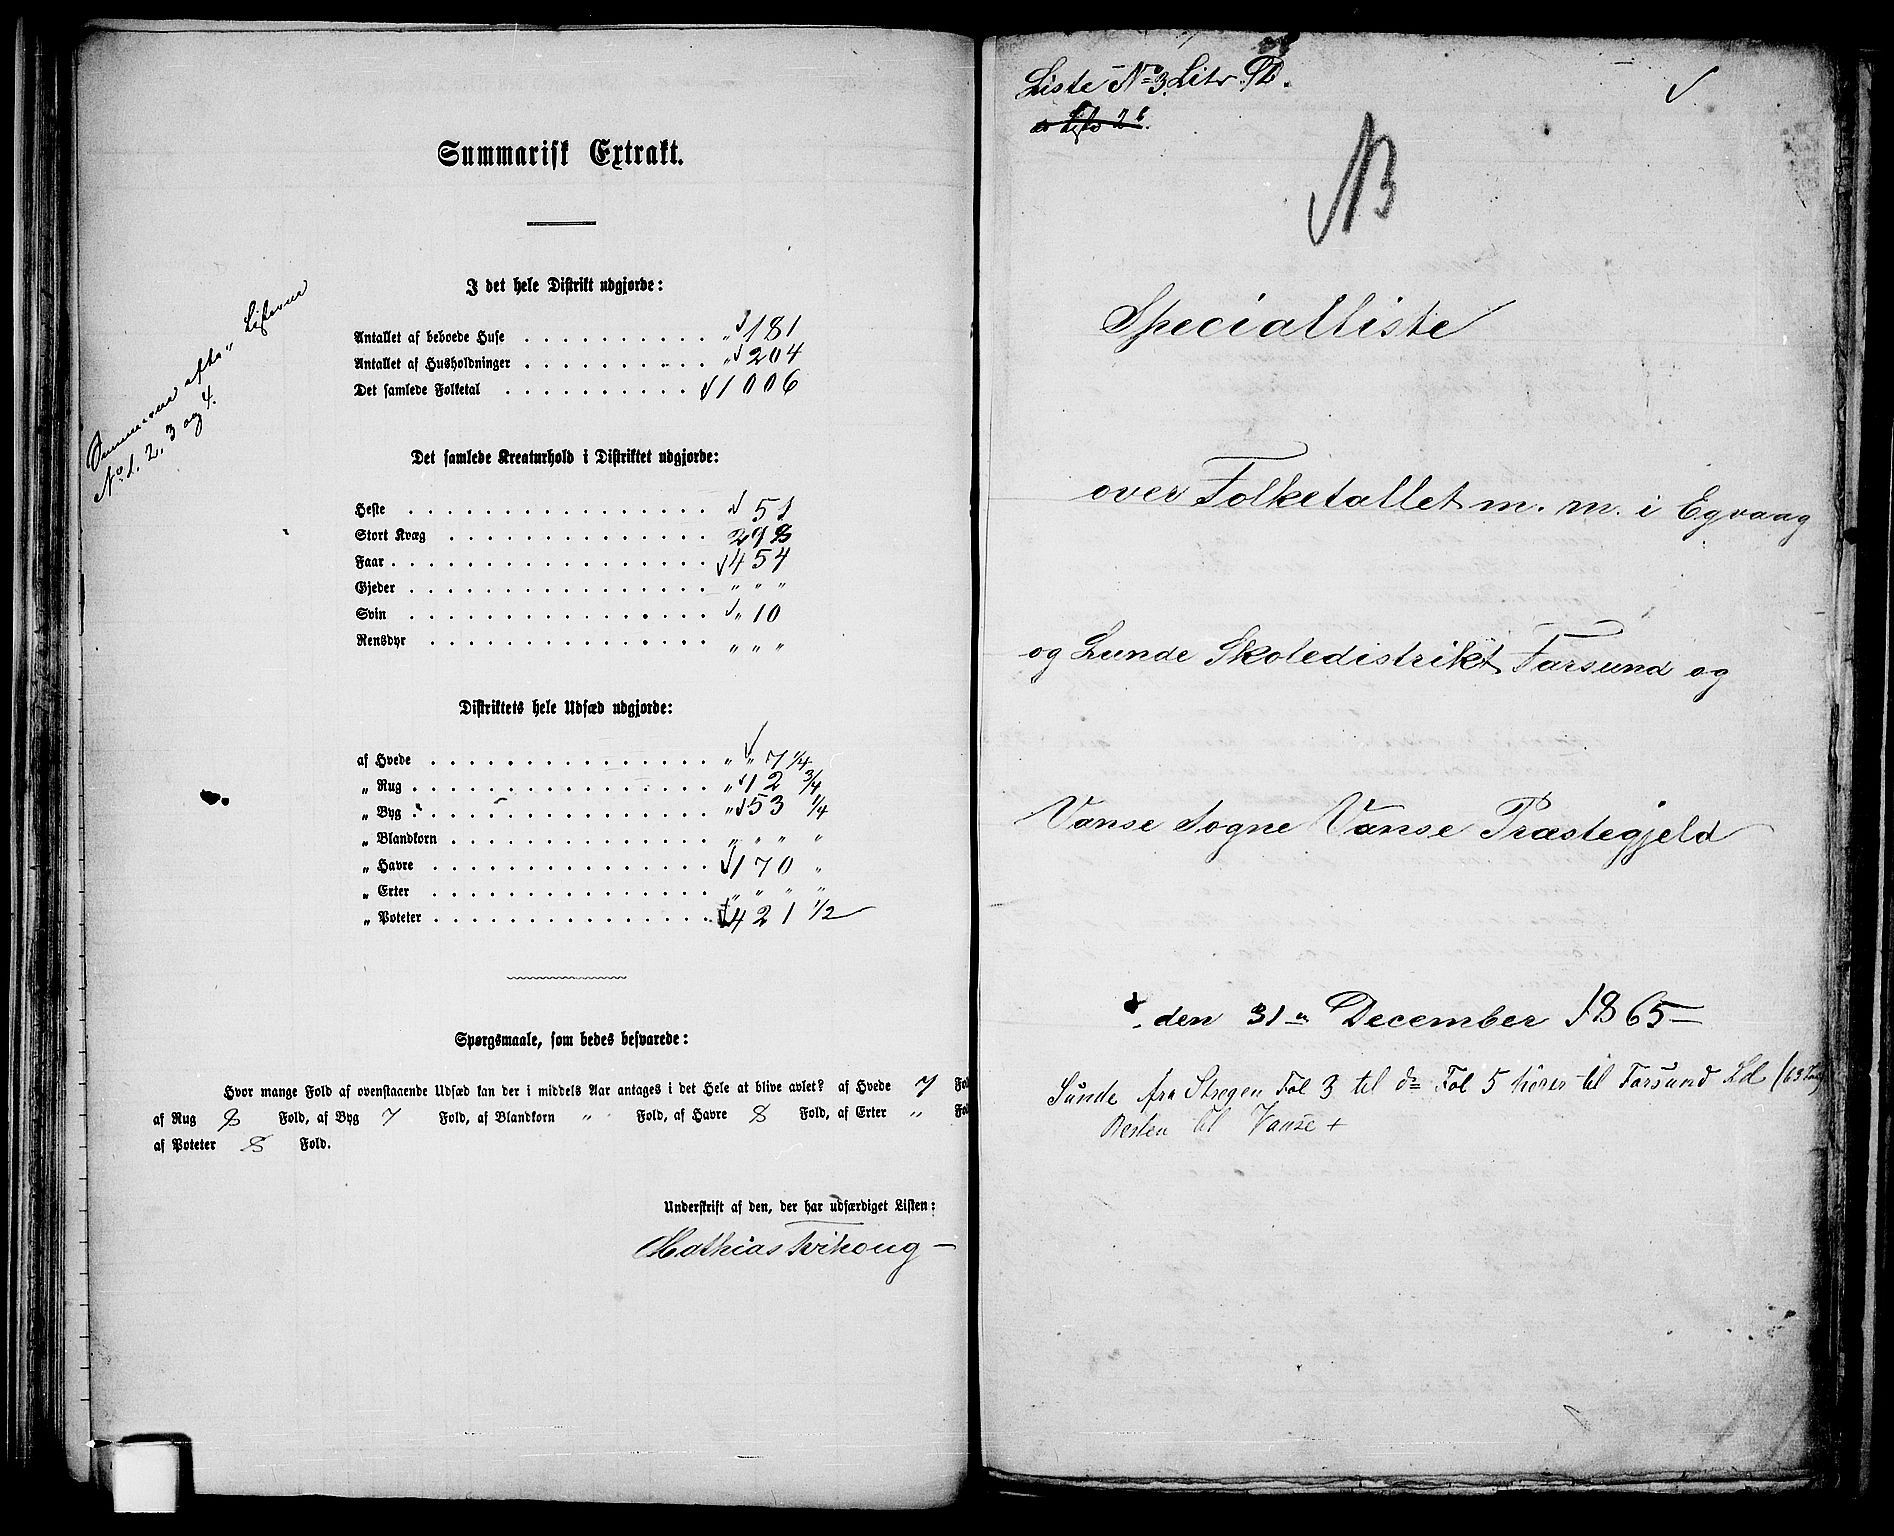 Summarisk Extrakt.
I det hele Distrikt udgjorde:
Antallet af beboede Huse . . . . . . . . . . „ 181
Antallet af Husholdninger . . . . . . . . . . „ 204
Det samlede Folketal . . . . . . . . . . 1006
Summerne efter Listerne
No 1. 2. 3 og 4.
Det samlede Kreaturhold i Distriktet udgjorde:
Heste . . . . . . . . . . 51
Stort Kvæg . . . . . . . . . . 298
Faar . . . . . . . . . . 454
Gjeder . . . . . . . . . . „ „ „
Svin . . . . . . . . . . „ 10
Rensdyr . . . . . . . . . . „ „ „
Distriktets hele Udsæd udgjorde:
af Hvede . . . . . . . . . . „ „ 7 1/4
„ Rug . . . . . . . . . . „ 12 3/4
„ Byg . . . . . . . . . . „ 53 1/4
„ Blandkorn . . . . . . . . . . „ „ „ „
„ Havre . . . . . . . . . . 170 „
„ Erter . . . . . . . . . . „ „ „ „
„ Poteter . . . . . . . . . . 421 1/2
Spørgsmaale, som bedes besvarede:
Hvor mange Fold af ovenstaaende Udsæd kan der i middels Aar antages i det Hele at blive avlet? af Hvede 7 Fol
af Rug 8 Fold, af Byg 7 Fold, af Blandkorn „ Fold, af Havre 8 Fold, af Erter „ Fol
af Poteter 8 Fold.
Underskrift af den, der har udfærdiget Listen:
Mathias
Liste No 3. Litr.
NB
Specialliste
over Folketallet m. m. i Egvaag
og Lunde Skoledistrikt, Farsund og
Vanse Sogne Vanse Præstegjeld
den 31te December 1865
Sunde fra Stregen Fol 3 til do Fol 5 hører til Farsund Ld
Resten til Vanse +